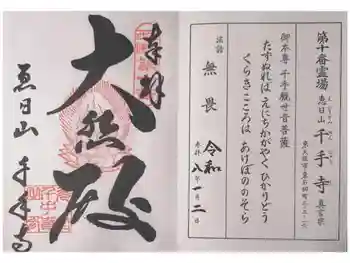 奉拝
大悲殿
恵日山 千手寺
第十番霊場
恵日山 千手寺 真言宗
御本尊 千手観世音菩薩
たずぬれば えにちかがやく ひかりどう
くらきこころは あけぼののそら
法話 無畏
奉拝 令和八年一月二日